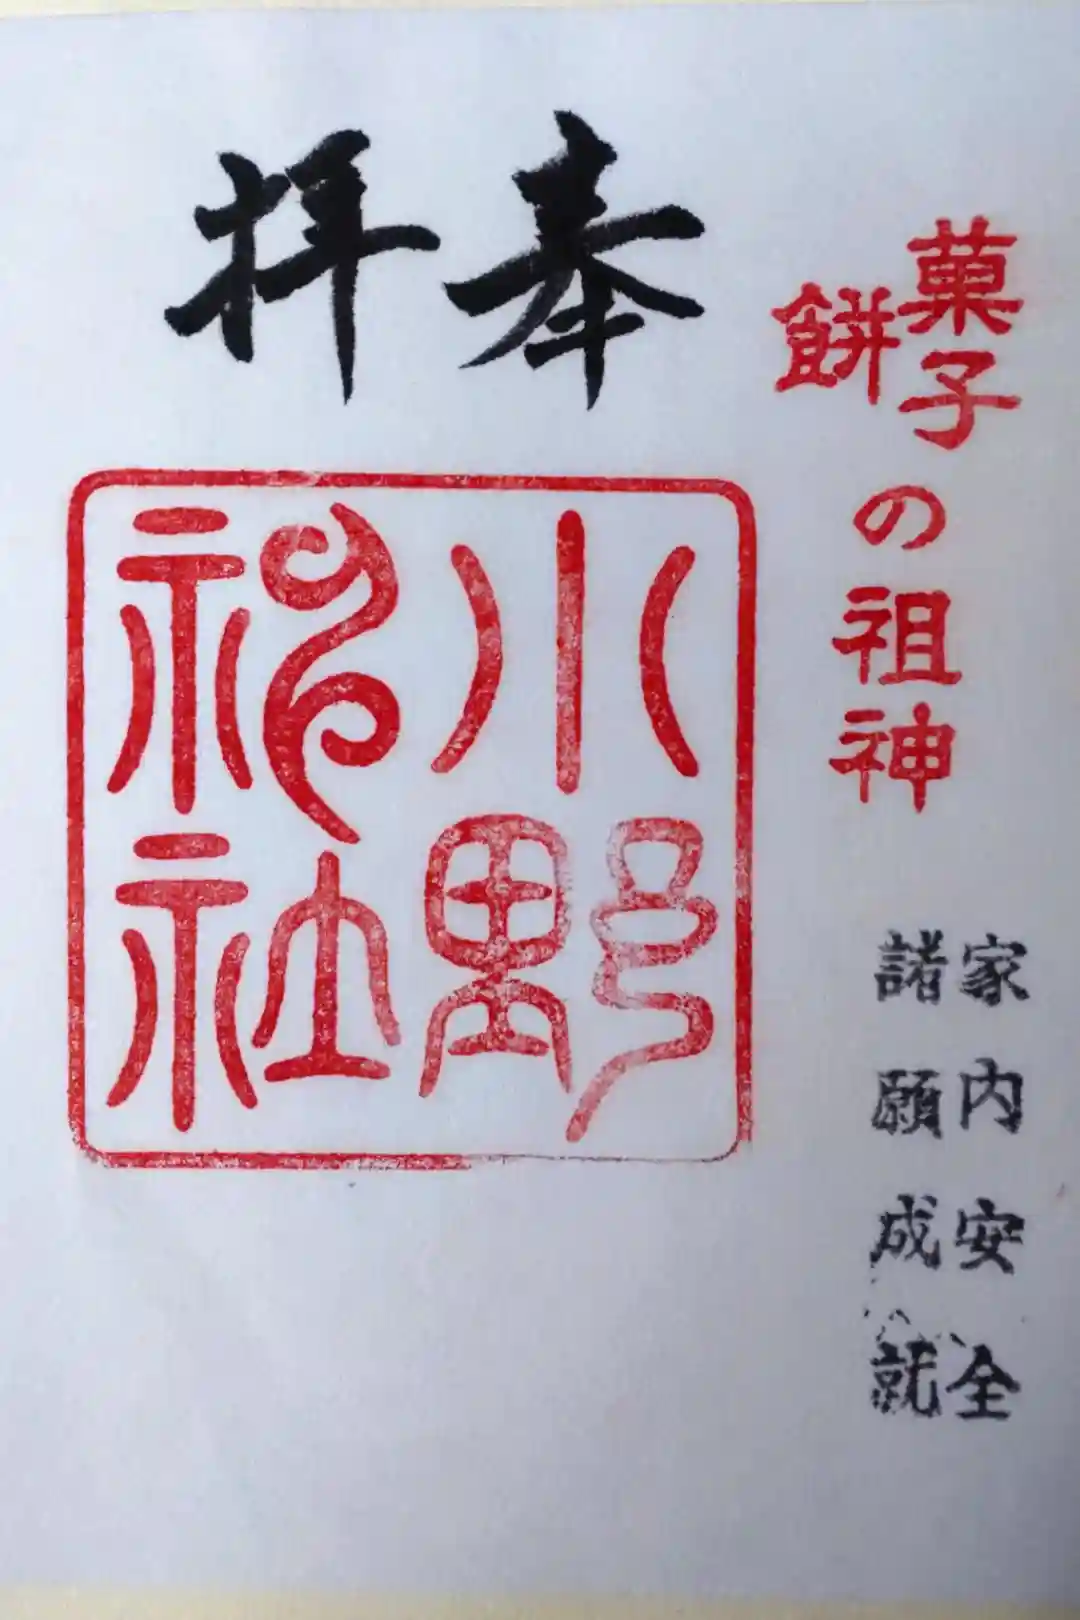 菓子
餅
の祖神
家内安全
諸願成就
奉拝
小野
神社